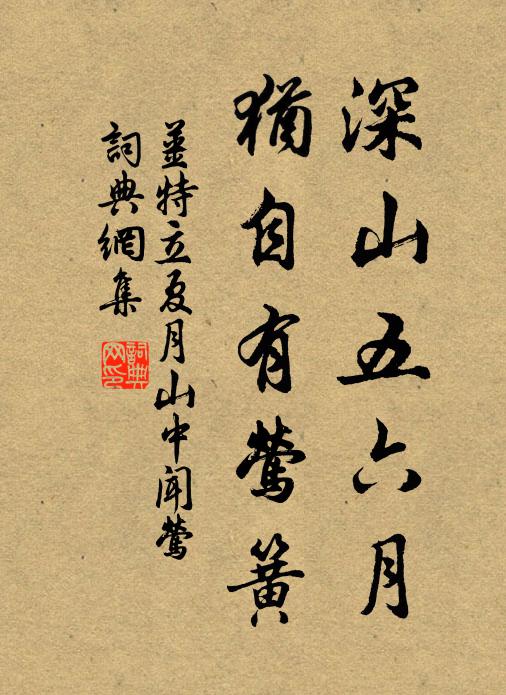 深山五六月
猶自有鶯簧
姜特立夏月山中聞鶯
詞典網集
詞典网印